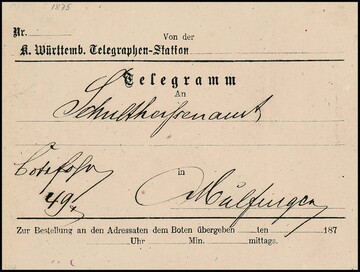 1875
Nr.
Von der
K. Württemb. Telegraphen-Station
Telegramm
An
Schultheißenamt
Botelohn
in
49 x
Mulfingen
Zur Bestellung an den Adressaten dem Boten übergeben ten 187
Uhr Min. mittags.